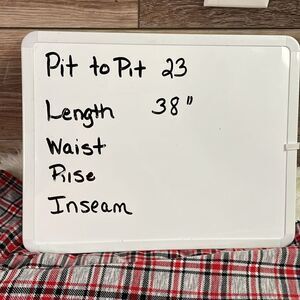 Pit to Pit 23
Length 38"
Waist
Rise
Inseam